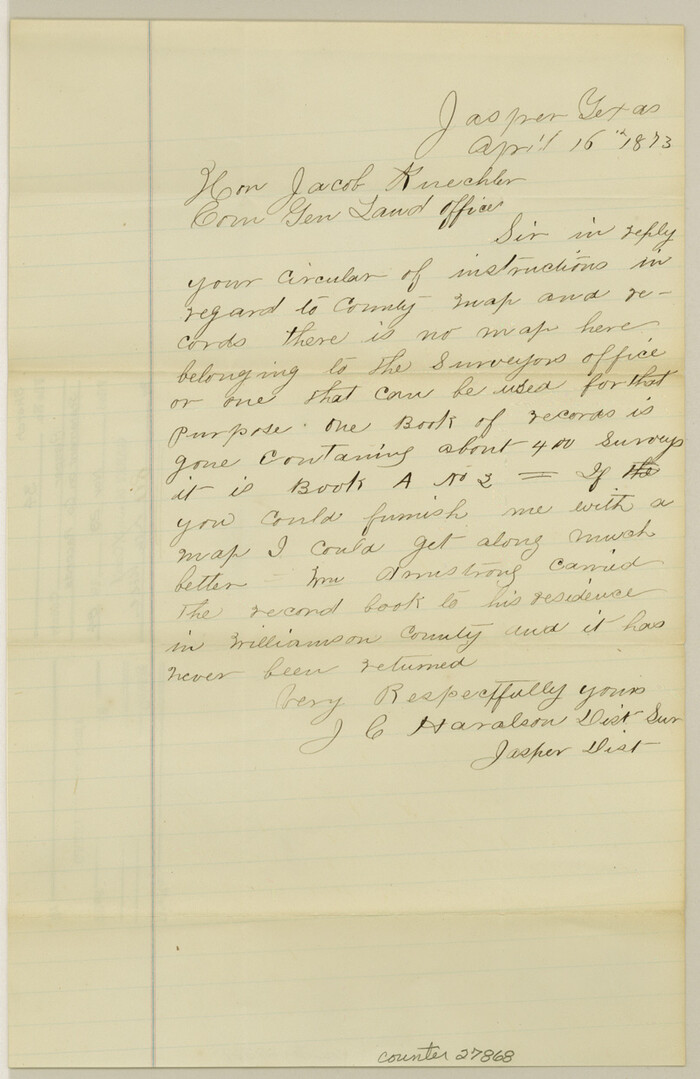 Jasper Texas
April 16th 1873
Hon Jacob Kuechler
Com Gen Land office
Sir in reply
your circular of instructions in
regard to County map and re-
cords there is no map here
belonging to the Surveyors office
or one that can be used for that
purpose. one Book of records is
gone containing about 400 surveys
it is Book A No 2 = If the
you could furnish me with a
map I could get along much
better - Mr Armstrong carried
the record book to his residence
in Williamson County and it has
never been returned
Very Respectfully yours
J C Haralson Dist Sur
Jasper Dist
counter 27868